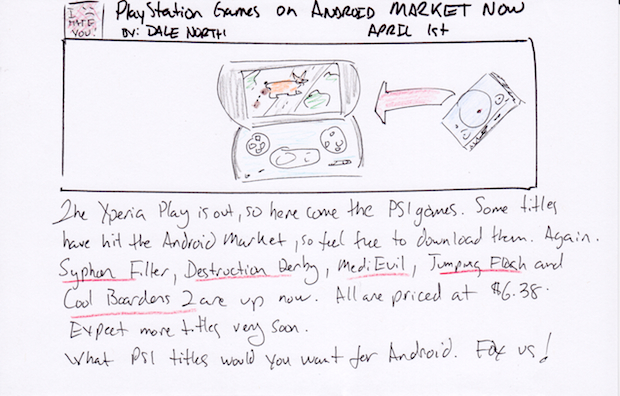 I HATE YOU!
PlayStation Games on ANDROID MARKET NOW
BY: DALE NORTH APRIL 1st
The Xperia Play is out, so here come the PS1 games. Some titles
have hit the Android Market, so feel free to download them. Again.
Syphon Filter, Destruction Derby, MediEvil, Jumping Flash and
Cool Boarders 2 are up now. All are priced at $6.38.
Expect more titles very soon.
What PS1 titles would you want for Android. Fax us!